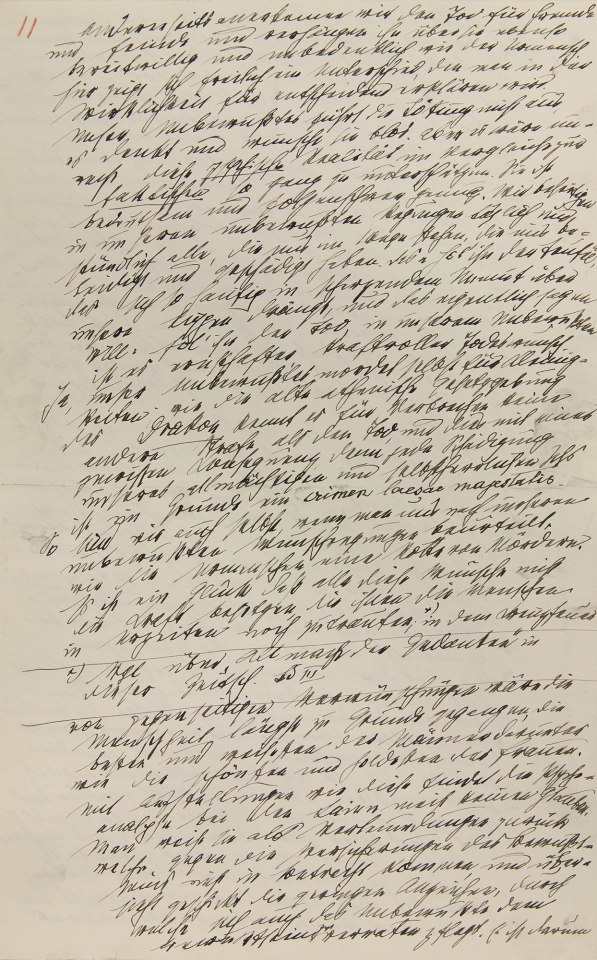 11
Andererseits anerkennen wir den Tod für Fremde
und Feinde und verhängen ihn über sie ebenso
bereitwillig und unbedenklich wie der Urmensch
Hier zeigt sich freilich ein Unterschied, den man in der
Wirklichkeit für entscheidend erklären wird.
Unser Unbewußtes führt die Tötung nicht aus
es denkt und wünscht sie blos. Aber es wäre un-
recht diese psychische Realität im Vergleiche zur
faktischen so ganz zu unterschätzen. Sie ist
bedeutsam und folgenschwer genug. Wir beseitigen
in unseren unbewußten Regungen täglich und
stündlich alle, die uns im Wege stehen, die uns be-
leidigt und geschädigt haben. Das: hol ihn der Teufel,
das sich so häufig in scherzendem Unmut über
unsere Lippen drängt, und das eigentlich sagen
will: hol' ihn der Tod, in unserem Unbewußten
ist es ernsthafter kraftvoller Todeswunsch.
Ja, unser Unbewußtes mordet selbst für Kleinig-
keiten; wie die alte athenische Gesetzgebung
des Drakon kennt es für Verbrechen keine
andere Strafe als den Tod und dies mit einer
gewissen Konsequenz denn jede Schädigung
unseres allmächtigen und selbstherrlichen Ichs
ist im Grunde ein crimen laesae majestatis.
So sind wir auch selbst wenn man uns nach unseren
unbewußten Wunschregungen beurteilt,
wie die Urmenschen eine Rotte von Mördern.
Es ist ein Glück daß alle diese Wünsche nicht
die Kraft besitzen die ihnen die Menschen
in Urzeiten noch zutrauten, *) in dem Kreuzfeuer
*) Vgl über „Allmacht der Gedanken“ in
dieser Zeitsch. Bd III
der gegenseitigen Verwünschungen wäre die
Menschheit längst zu Grunde gegangen, die
besten und weisesten der Männer darunter
wie die schönsten und holdesten der Frauen.
Mit Aufstellungen wie diese findet die Psycho-
analyse bei den Laien meist keinen Glauben.
Man weist sie als Verleumdungen zurück
welche gegen die Versicherungen des Bewußt-
seins nicht in Betracht kommen und über-
sieht geschickt die geringen Anzeichen, durch
welche sich auch das Unbewußte dem
Bewußtsein zu verraten pflegt. Es ist darum